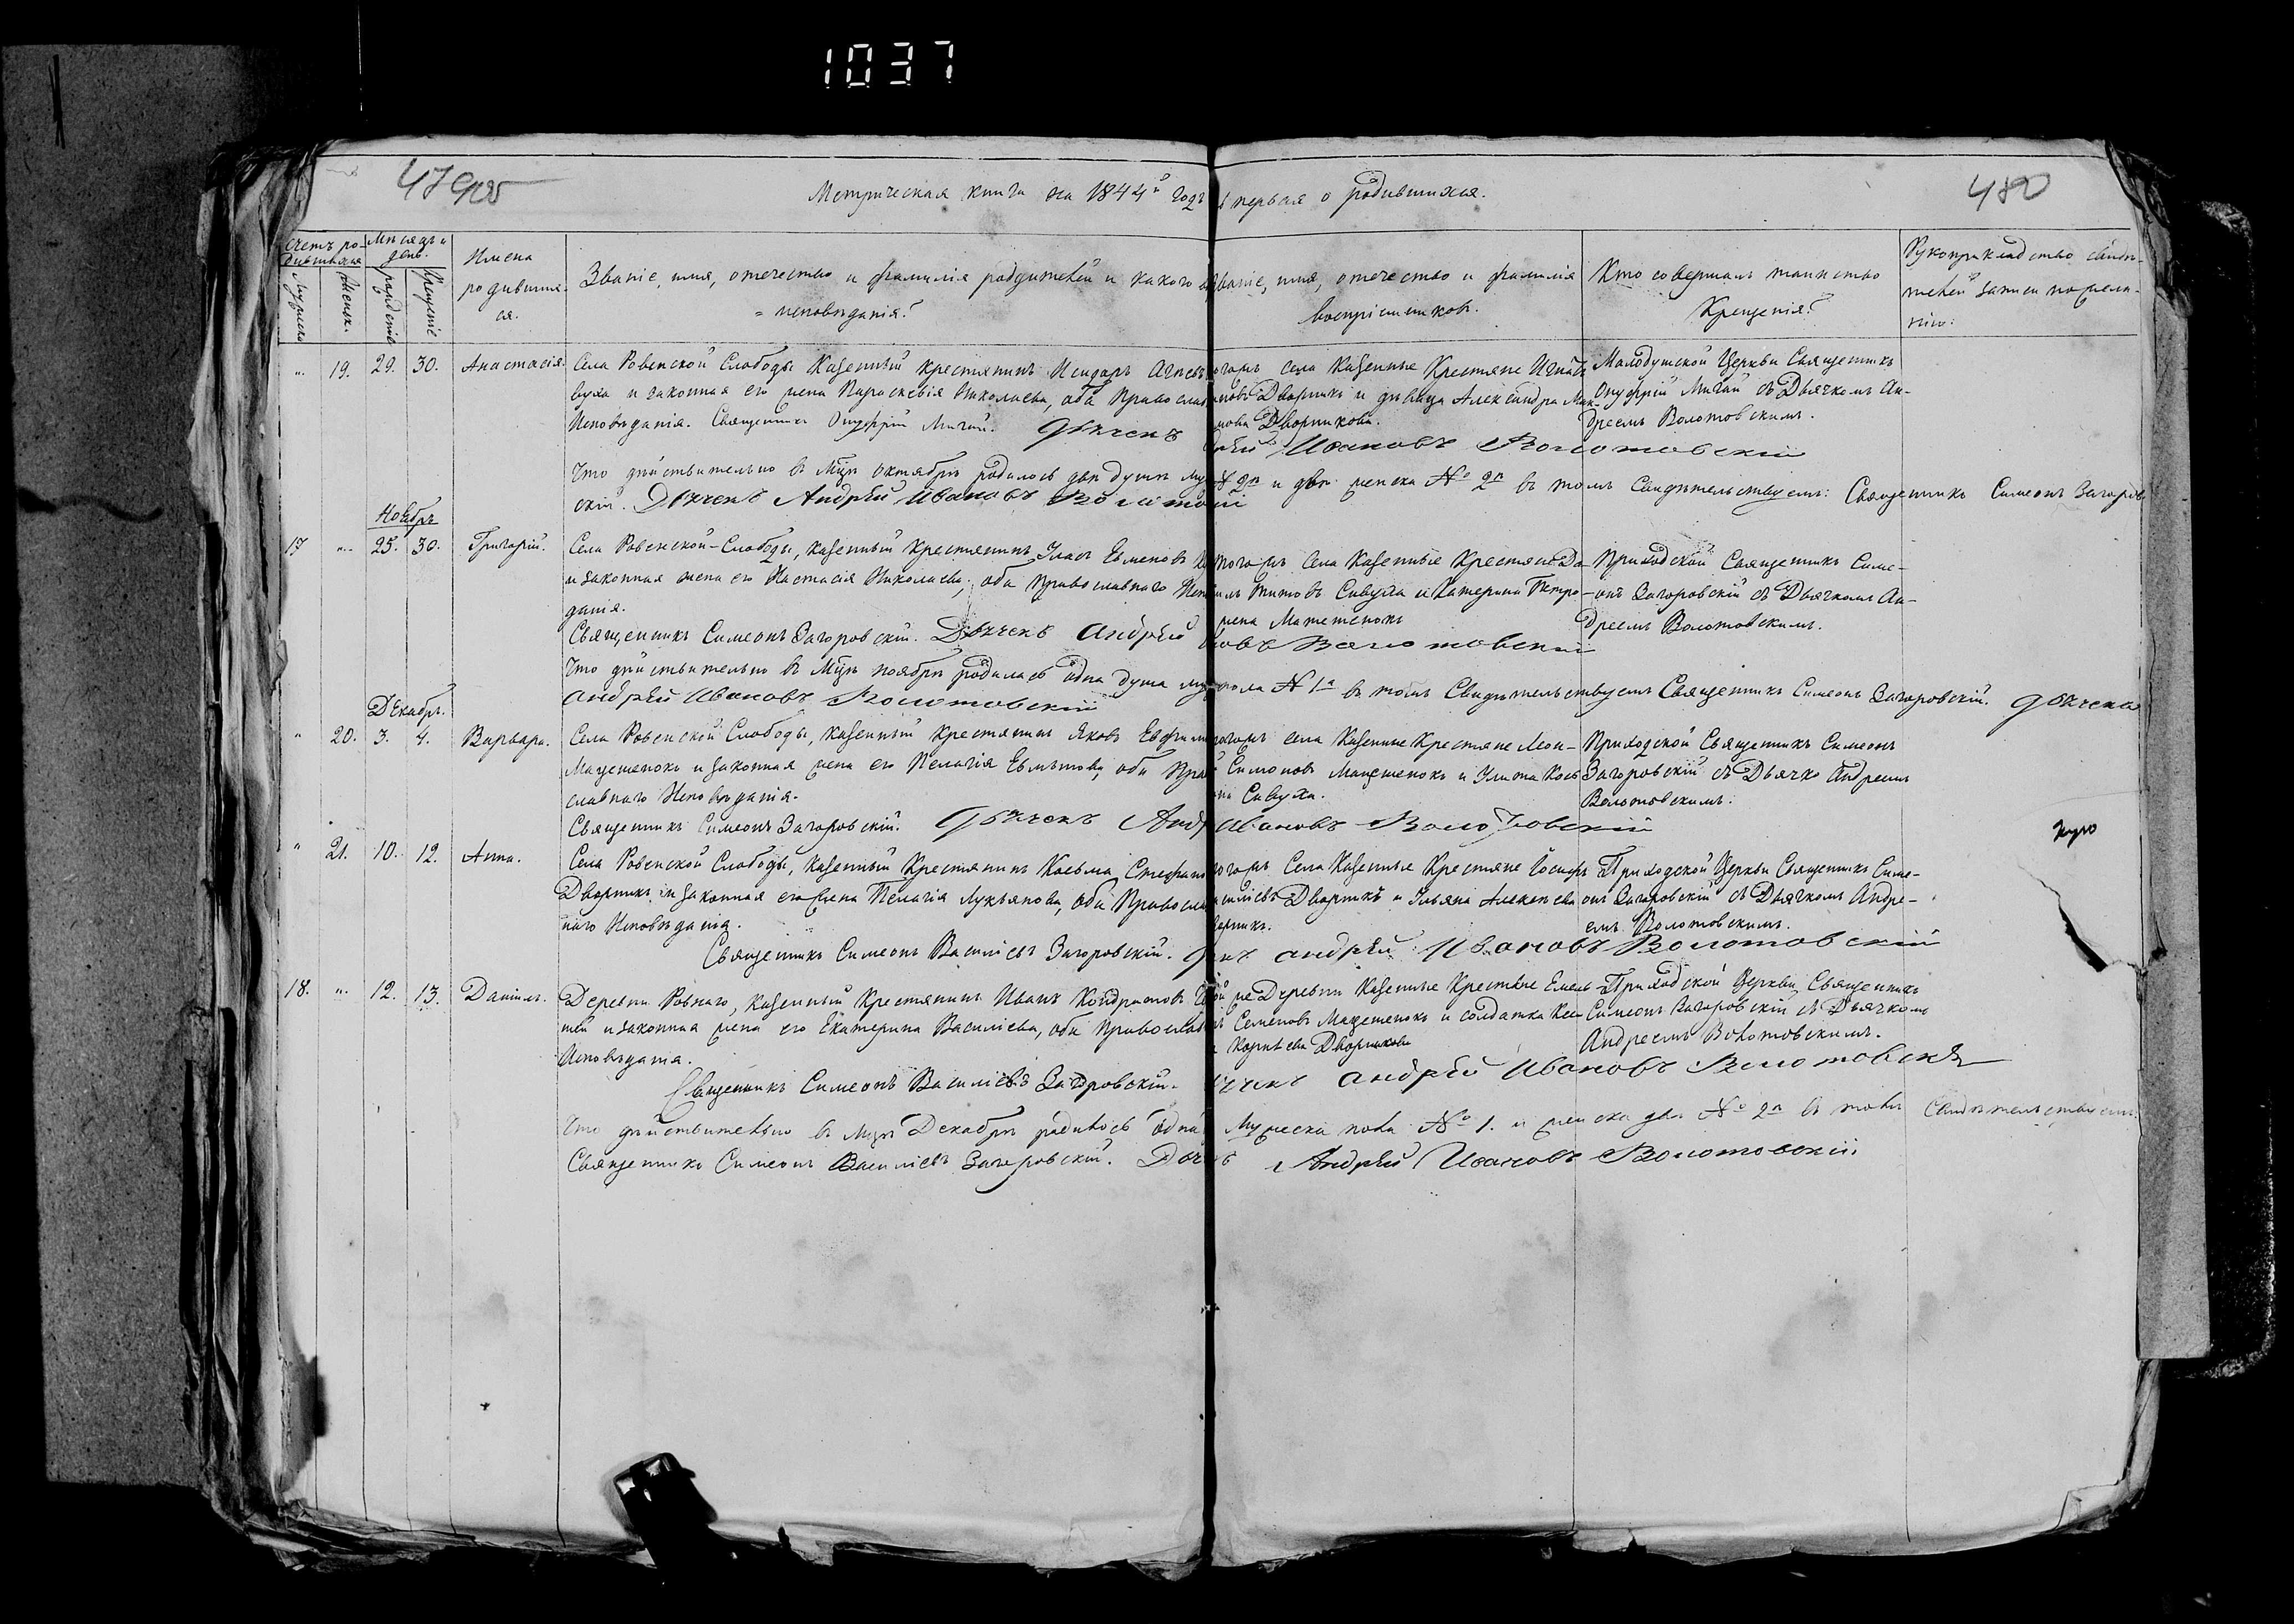 1037
480
Метрическая книга на 1844й годъ первая о родившихся.
Счетъ родившихся
Мужеска
Женск.
Мѣсяцъ и день.
рожденіе
Крещеніе
Имена родившихся.
Званіе, имя, отечество и фамилія родителей и какого
исповѣданія?
Званіе, имя, отечество и фамилія
воспріемниковъ.
Кто совершалъ таинство
Крещенія?
Рукоприкладство свидѣ-
телей записи по жела-
нію:
" 19. 29. 30. Анастасія.
Села Ровенской Слободы Казенный Крестянинъ Исидоръ
и законная его жена Параскевія Николаева, оба Православ
Исповѣданія. Священникъ Онуфрій Мигай. Дьячекъ
тогожъ села Казенные Крестяне Игнатъ
Дворникъ и дѣвица Александра Мак-
мова Дворникова.
Малодушской Церкви Священникъ
Онуфрій Мигай съ Дьячкомъ Ан-
дреемъ Волотовскимъ.
Андрей Ивановъ Волотовскій
Что дѣйствительно въ Мцѣ октябрѣ родилось двѣ души муж № 2й и двѣ женска № 2й въ томъ Свидѣтельствуемъ: Священникъ Симеонъ Загоров
скій. Дьячекъ Андрей Ивановъ Волотовскій
Ноябрь
17 " 25. 30. Григорій.
Села Ровенской-Слободы, казенный крестянинъ Уласъ Евменовъ
и законная жена его Настасія Николаева, оба Православнаго Испо
данія.
Священникъ Симеонъ Загоровскій. Дьячекъ Андрей Ивановъ Волотовскій
тогожъ Села Казенные Крестяне Да-
нилъ Титовъ Сивуха и Катерина Петро-
жена Матшенокъ
Приходской Священникъ Симе-
онъ Загоровскій съ Дьячкомъ Ан-
дреемъ Волотовскимъ.
Что дѣйствительно въ Мцѣ ноябрѣ родилась одна душа муж пола № 1й въ томъ Свидѣтельствуемъ Священникъ Симеонъ Загоровскій. Дьячекъ
Андрей Ивановъ Волотовскій
Декабрь.
" 20. 3. 4. Варвара.
Села Ровенской Слободы, казенный крестянинъ Яковъ Евфим
Мацетенокъ и законная жена его Пелагія, оба Пра
славнаго Исповѣданія.
Священникъ Симеонъ Загоровскій. Дьячекъ Андрей Ивановъ Волотовскій
тогожъ села Казенные Крестяне Леон-
Симоновъ Мацетенокъ и Улита
Сивуха.
Приходской Священникъ Симеонъ
Загоровскій съ Дьячко Андреемъ
Волотовскимъ.
" 21. 10. 12. Анна.
Села Ровенской Слободы, казенный Крестянинъ Косьма Стефан
Дворникъ и законная его жена Пелагія Лукьянова, оба Правосла
наго Исповѣданія.
Священникъ Симеонъ Василіевъ Загоровскій. Андрей Ивановъ Волотовскій
тогожъ Села Казенные Крестяне Іосифъ
Василіевъ Дворникъ и Ульяна Алексѣева
Дворникъ.
Приходской Церкви Священникъ Симе-
онъ Загоровскій съ Дьячкомъ Андре-
емъ Волотовскимъ.
18. " 12. 13. Даніилъ.
Деревни Ровнаго, казенный Крестянинъ Иванъ Кондратовъ
и законная жена его Екатерина Василіева, оба Православ
Исповѣданія.
Священникъ Симеонъ Василіевъ Загоровскій. Дьячекъ Андрей Ивановъ Волотовскій
той же Деревни Казенные Крестяне Емель
Семеновъ Мацетенокъ и солдатка Ксе
Корнѣева Дворникова
Приходской Церкви Священникъ
Симеонъ Загоровскій съ Дьячкомъ
Андреемъ Волотовскимъ.
Что дѣйствительно въ Мцѣ Декабрѣ родилось одна Мужеска пола № 1. и женска два № 2й въ томъ Свидѣтельствуемъ
Священникъ Симеонъ Василіевъ Загоровскій. Дьячекъ Андрей Ивановъ Волотовскій.